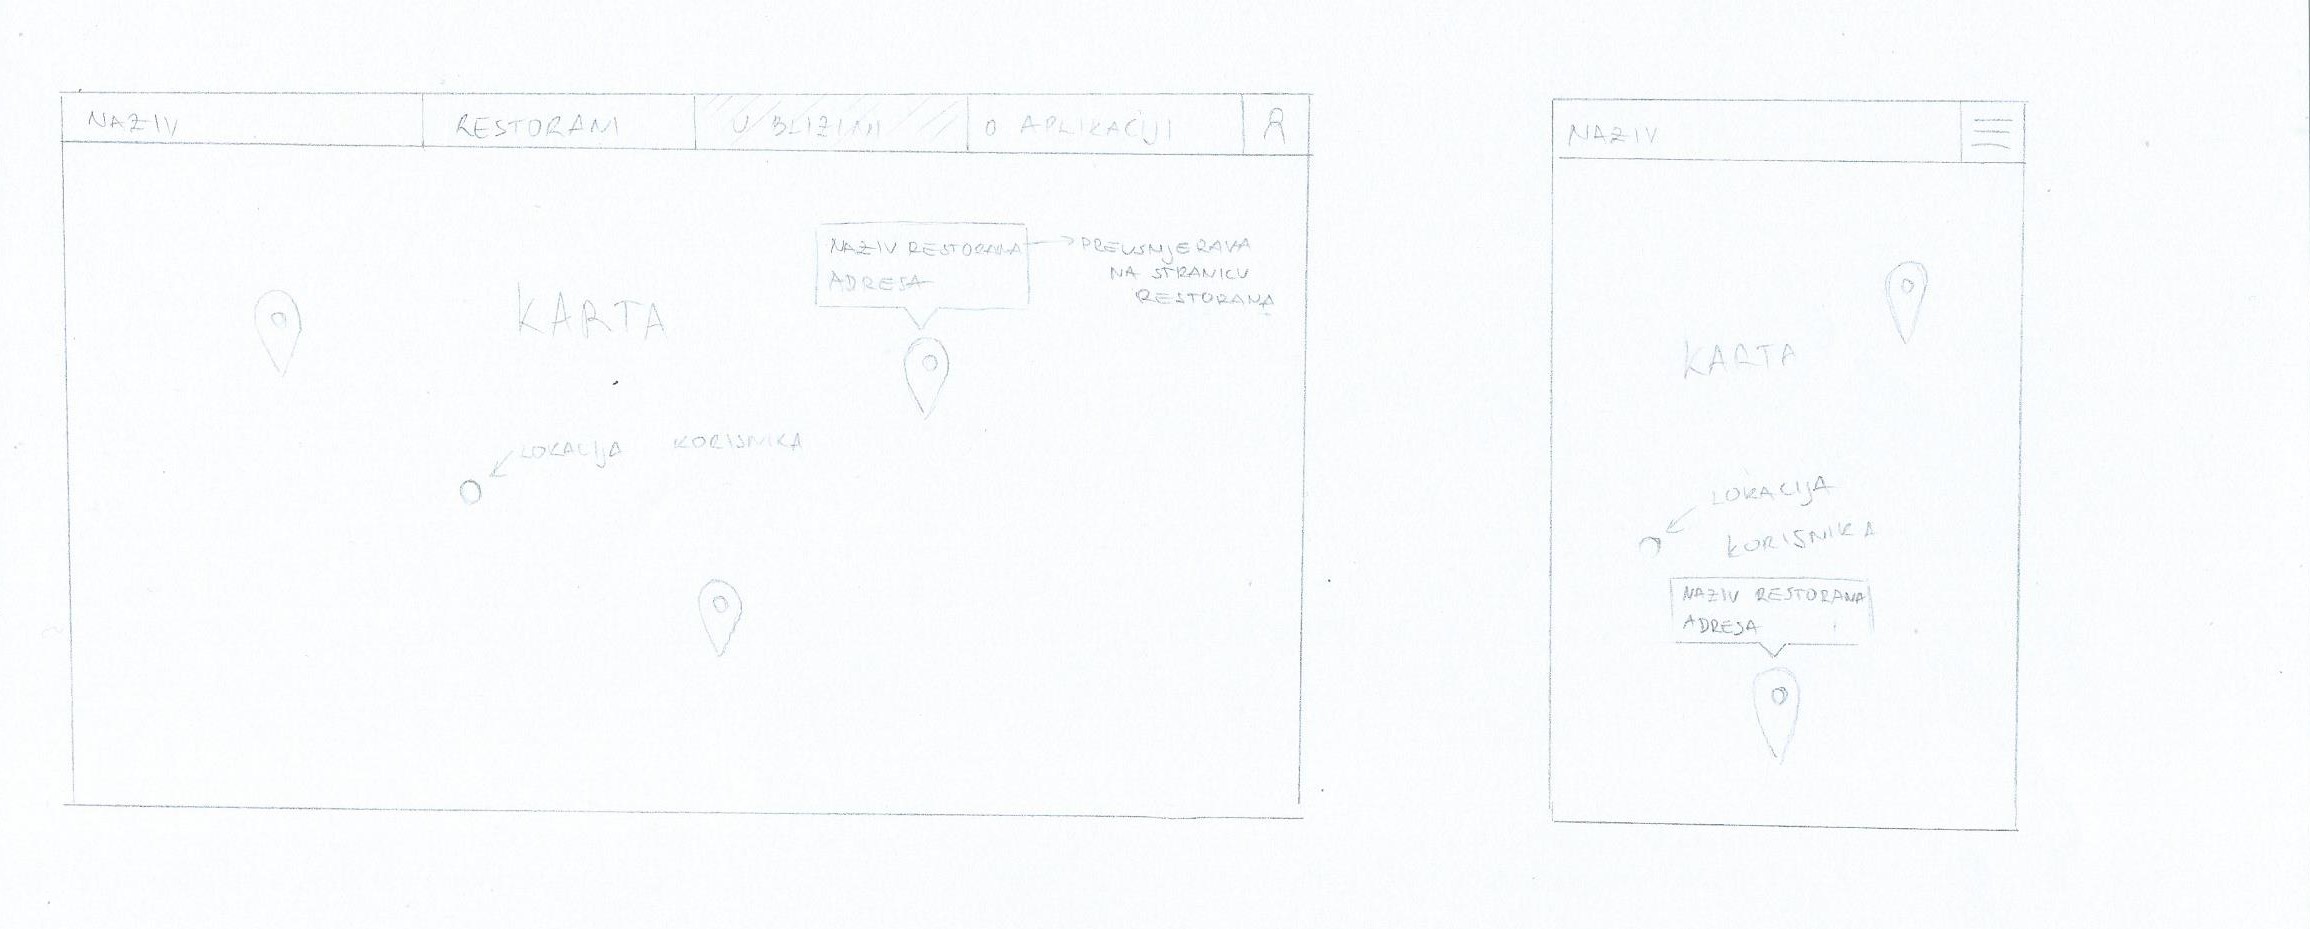 NAZIV
RESTORANI
U BLIZINI
O APLIKACIJI
NAZIV RESTORANA
ADRESA
PREUSMJERAVA
NA STRANICU
RESTORANA
KARTA
LOKACIJA KORISNIKA
NAZIV
KARTA
LOKACIJA
KORISNIKA
NAZIV RESTORANA
ADRESA